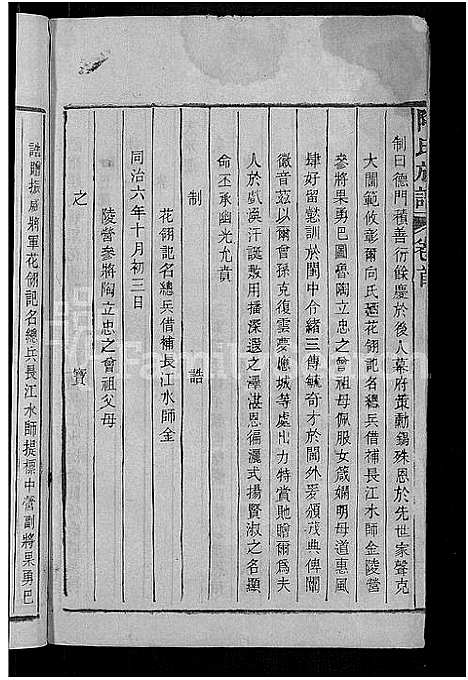 陶氏族譜 卷首
制曰德門積善衍餘慶於後人幕府策勳錫殊恩於先世家聲克
大閫範攸彰爾向氏廼花翎記名總兵借補長江水師金陵營
參將果勇巴圖魯陶立忠之曾祖母佩服女箴嫻明母道惠風
肆好留懿訓於閨中令緒三傳毓奇才於閫外爰頒茂典俾闡
徽音茲以爾曾孫克復雲夢應城等處出力特賞貤贈爾爲夫
人於戲渙汗誕敷用播深遐之澤湛恩徧灑式揚賢淑之名顯
命丕承幽光允賁
制 誥
同治六年十月初三日
花翎記名總兵借補長江水師金
陵營參將陶立忠之曾祖父母
之 寶
誥贈振威將軍花翎記名總兵長江水師提標中營副將果勇巴